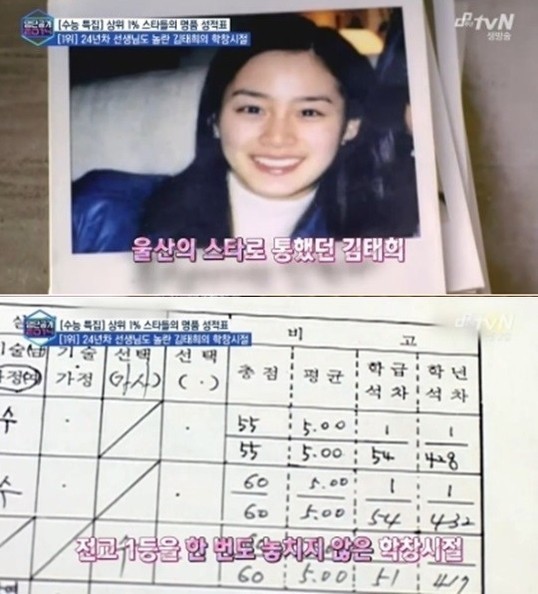 명단공개 2014
[수능 특집] 상위 1% 스타들의 명품 성적표
[1위] 24년차 선생님도 놀란 김태희의 학창시절
tvN
생방송
울산의 스타로 통했던 김태희
[수능 특집] 상위 1% 스타들의 명품 성적표
[1위] 24년차 선생님도 놀란 김태희의 학창시절
tvN
비 고
기술(남) 기술 선택 선택 총점 평균 학급 학년
가정(여) 가정 (가사) ( · ) 석차 석차
수 · · 55 5.00 1 1
55 5.00 54 428
수 · · 60 5.00 1 1
60 5.00 54 432
전교 1등을 한 번도 놓치지 않은 학창시절
60 5.00 51 417